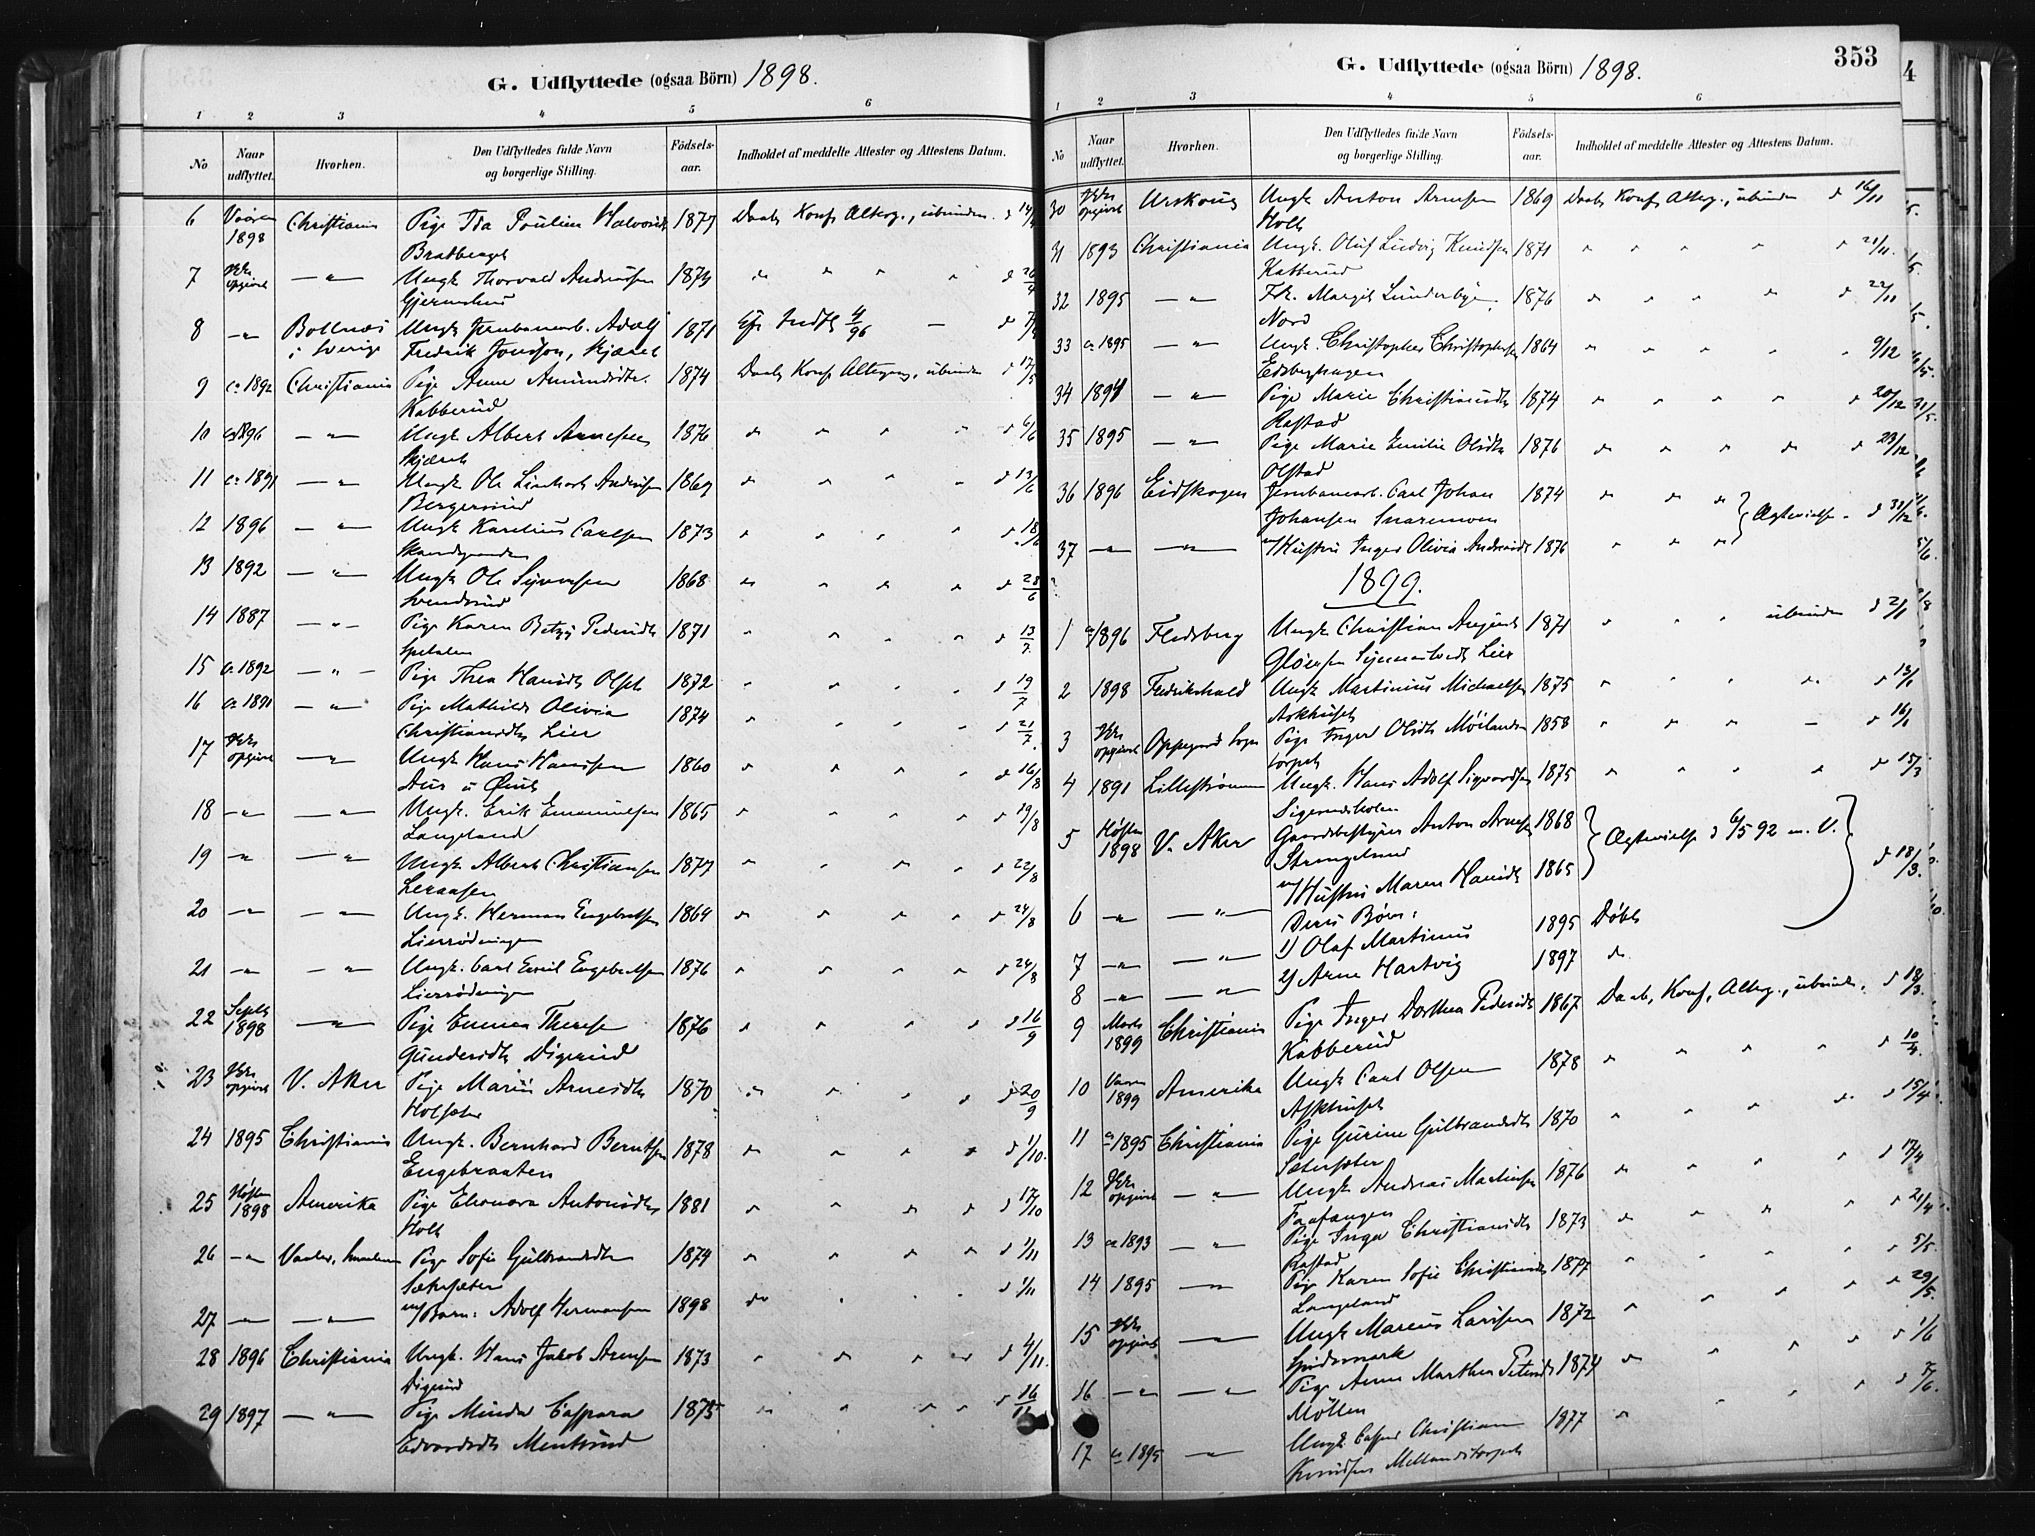 G. Udflyttede (ogsaa Börn) 1898.
1 2 3 4 5 6
No
Naar udflyttet.
Hvorhen.
Den Udflyttedes fulde Navn og borgerlige Stilling.
Födsels-aar.
Indholdet af meddelte Attester og Attestens Datum.
6 Vaaren 1898 Christiania Pige Ida Pouline 1877 Daab, Konf. Alterg., ubunden d
Bratberget
7 Ikke opgivet — " — Ungk. Thorvald Andersen 1874
8 — " — Bollnæs i Sverige Ungk. Jernbanearb. Adolf 1871 4/96
Fredrik Jonsson, Skjæret
9 ca 1892 Christiania Pige Anne Amundsdtr. 1874 Daab Konf. Alterg., ubunden d
Kabberud
10 — " — Ungk Albert Arnesen 1876 d 6/6
Skjæret
11 ca 1891 — " — Ungk Ole Linhart Andersen 1869 d 13/6
Bergerud
12 1896 — " — Ungk Karelius Carlsen 1873 d 18/6
13 1892 — " — Ungk Ole Syversen 1868 d 28/6
Svendsrud
14 1887 — " — Pige Karen Betzy Pedersdtr 1871 d 13/7
Spetalen
15 ca 1892 — " — Pige Thea Hansdtr Olset 1872 d 19/7
16 ca 1891 — " — Pige Mathilde Olivia 1874 d 21/7
Christiansdtr Lier
17 Ikke opgivet — " — Ungk Hans Hansen 1860 d 16/8
18 — " — — " — Ungk. Erik Emanuelsen 1865 d 19/8
Langeland
19 — " — — " — Ungk Albert Christiansen 1877 d 22/8
Leraasen
20 — " — — " — Ungk. Herman Engebretsen 1864 d 24/8
Lierrødningen
21 — " — — " — Ungk. Carl Emil Engebretsen 1876 d 24/8
Lierrødningen
22 Septb 1898 — " — Pige Emma Therese 1876 d 16/9
Gundersdtr Digerud
23 Ikke opgivet V. Aker Pige Marie Arnesdtr 1870 d 20/9
Holseter
24 1895 Christiania Ungk. Bernhard Berntsen 1878 d 1/10.
Engebraaten
25 Høsten 1898 Amerika Pige Elenora Antonsdtr 1881 d 17/10
Holt
26 — " — Vaaler, Smaalenene Pige Sofie Gulbrandsdtr 1874 d 1/11
Sætersæter
27 — " — — " — m/Barn: Adolf Hermansen 1898 do d 1/11
28 1896 Christiania Ungk. Hans Jakob Arnesen 1873 d 4/11.
Digerud
29 1897 — " — Pige Minda Caspara 1875 d 16/11
Edvardsdtr Mentsrud
G. Udflyttede (ogsaa Börn) 1898.
353
1 2 3 4 5 6
No
Naar udflyttet.
Hvorhen.
Den Udflyttedes fulde Navn og borgerlige Stilling.
Födsels-aar.
Indholdet af meddelte Attester og Attestens Datum.
30 Ikke opgivet Urskoug Ungk Anton Arnesen 1869 Daab Konf. Alterg., ubunden d 16/11
Holt
31 1893 Christiania Ungk. Oluf Ludvig Knudsen 1871 21/11.
Katterud
32 1895 — " — Frk. Margit Sunderbye 1876 d 22/11
Nord
33 ca 1895 — " — Ungk. Christopher Christophersen 1864 9/12
Edsberghagen
34 1894 — " — Pige Marie Christiansdtr 1874 d 20/12
Rastad
35 1895 — " — Pige Marie Emilie Olsdtr 1876 d 23/12
Olstad
36 1896 Eidskogen Jernbanearb. Carl Johan 1874 Ægtevielse d 31/12
Johansen Snaremoen
37 — " — — " — m/Hustru Inger Olivia Andersdtr 1876
1899.
1 ca 1896 Flesberg Ungk Christian August 1871 ubunden d 2/1
Lier
2 1898 Fredrikshald Ungk Martinius Michaelsen 1875 d 13/1
Askhuset
3 Ikke opgivet Oppegaard Sogn Pige Inger Olsdtr 1858 d 16/1
4 1891 Lillestrømmen Ungk. Hans Adolf Sigvardsen 1875 d 15/3
5 Høsten 1898 V. Aker Gaardsbestyrer Anton Arnesen 1868 Ægtevielse d 6/5 92 m. V. d 18/3.
Strengelsrud
6 — " — — " — m/Hustru Maren Hansdtr 1865
Deres Børn:
7 — " — — " — 1) Olaf Martinus 1895 Døbt
8 — " — — " — 2) Arne Hartvig 1897 do
9 Marts 1899 Christiania Pige Inger Dorthea Pedersdtr 1867 Daab, Konf., Alterg., ubund., d 18/3.
Kabberud
10 Vaaren 1899 Amerika Ungk Carl Olsen 1878 d 10/4.
Askhuset
11 ca 1895 Christiania Pige Gurine Gulbrandsdtr 1870 d 15/4
Sætersæter
12 Ikke opgivet — " — Ungk Andreas Martinsen 1876 d 17/4
Faafangen
13 ca 1893 — " — Pige Inga Christiansdtr 1873 d 21/4
Rastad
14 1895 — " — Pige Karen Sofie Christiansdtr 1877 d 5/5.
Langeland
15 Ikke opgivet — " — Ungk Marcus Larsen 1872 d 29/5.
16 — " — — " — Pige Anne Marthea Petersdtr 1874 d 1/6
Møllen
17 ca 1895 — " — Ungk Casper Christian 1877
Knudsen
4